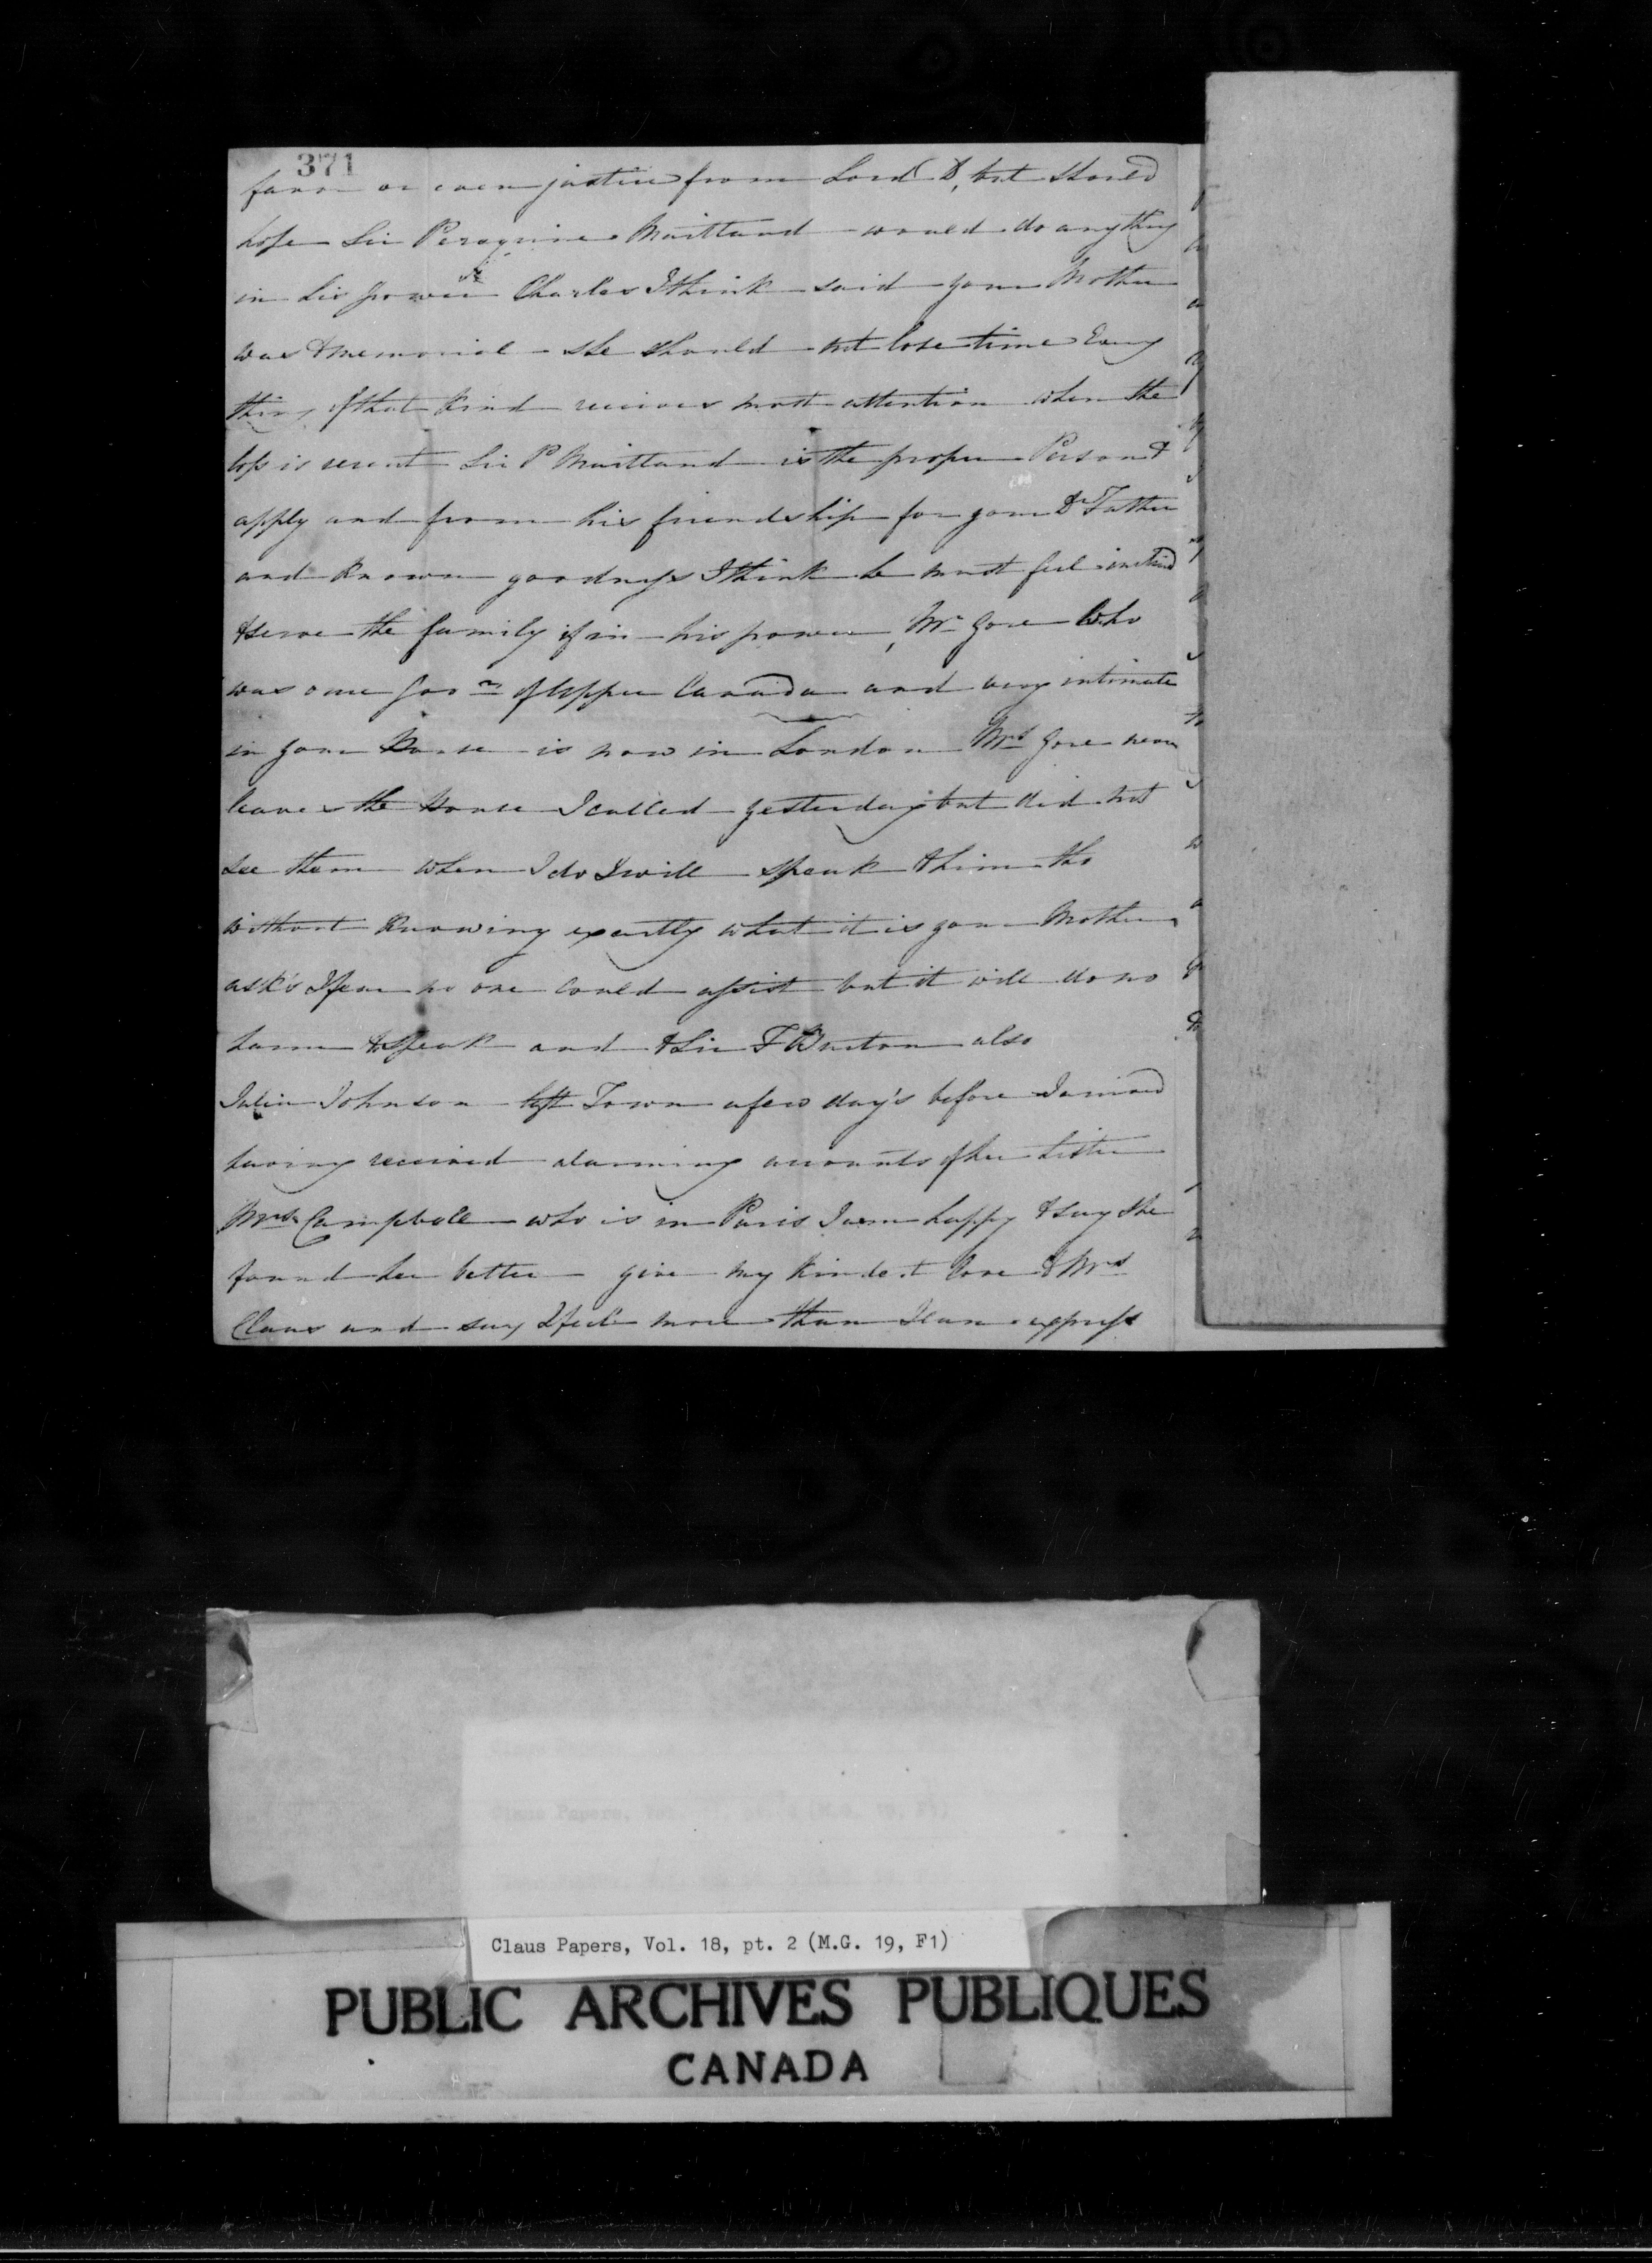 371
favor or even justice from Lord D, but should
hope Sir Peregrine Maitland would do any thing
in his power Charles I think said your Mother
was to memorial she should not lose time Every
thing of that kind receives most attention when the
loss is recent Sir P Maitland is the proper Person to
apply and from his friendship for your Dr Father
and known goodness I think he must feel inclined
to serve the family if in his power, Mr Gore who
was once Govr of Upper Canada and very intimate
in your House is now in London Mrs Gore never
leaves the House I called yesterday but did not
see them when I do I will speak to him tho
without knowing exactly what it is your Mother
ask's I fear no one could assist but it will do no
harm to speak and to Sir F Burton also
Julia Johnson left Town a few day's before I arrived
having received alarming accounts of her Sister
Mrs Campbell who is in Paris I am happy to say she
found her better give my kindest love to Mrs
Claus and say I feel more than I can express
Claus Papers, Vol. 18, pt. 2 (M.G. 19, F1)
PUBLIC ARCHIVES PUBLIQUES
CANADA